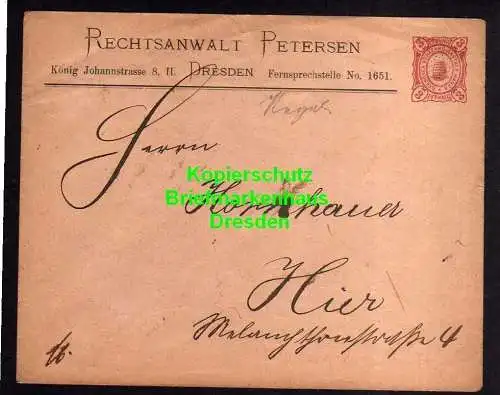 RECHTSANWALT PETERSEN
König Johannstrasse 8, II. DRESDEN Fernsprechstelle No. 1651.
Herrn
Kopierschutz
Briefmarkenhaus
Dresden
Hier
Melanchthonstraße 4